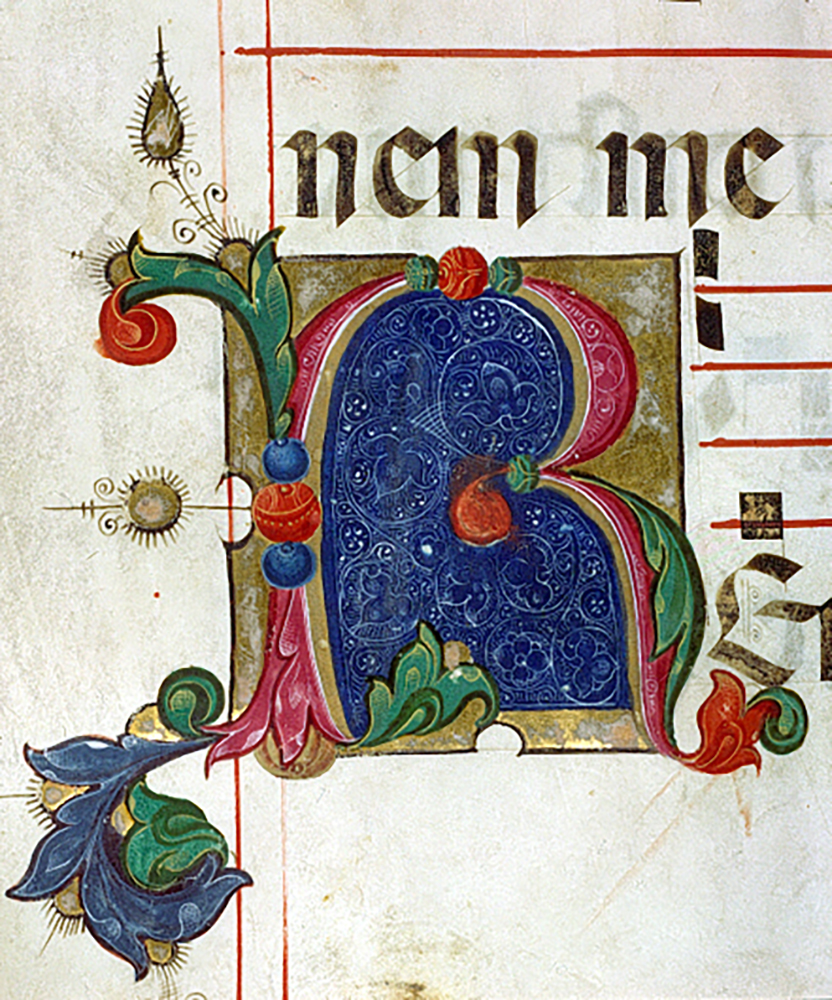 nem me
R